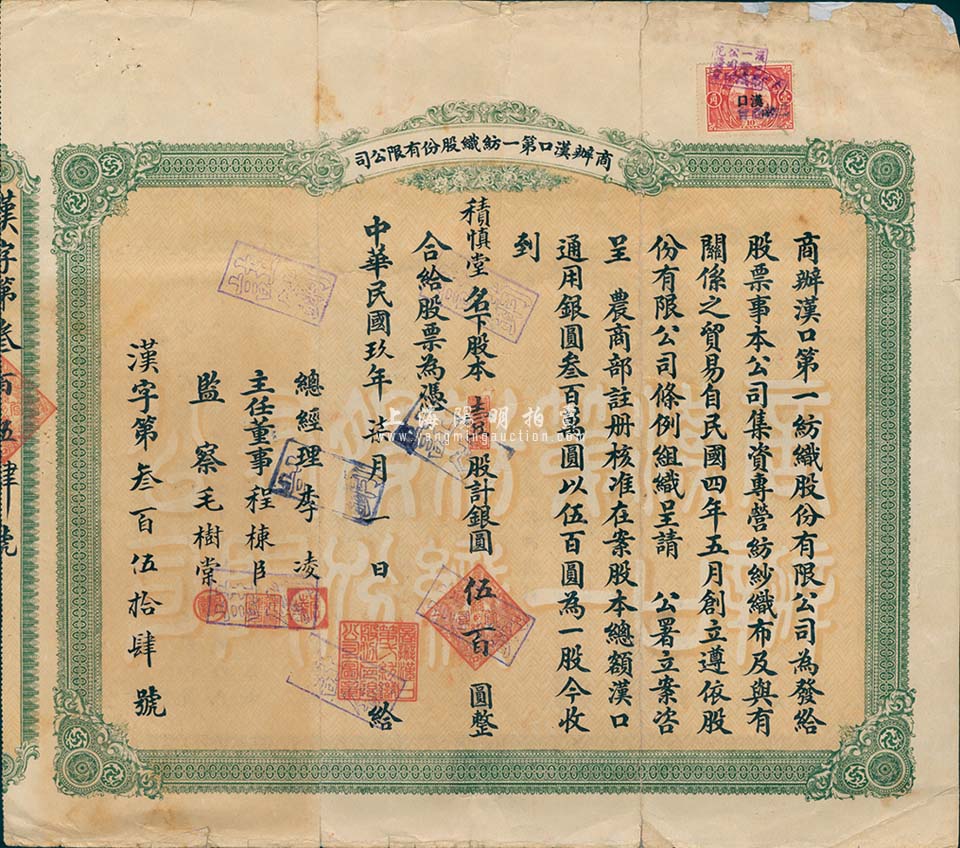 商辦漢口第一紡織股份有限公司
商辦漢口第一紡織股份有限公司為發給
股票事本公司集資專營紡紗織布及與有
關係之貿易自民國四年五月創立遵依股
份有限公司條例組織呈請 公署立案咨
呈 農商部註册核准在案股本總額漢口
通用銀圓叁百萬圓以伍百圓為一股今收
到
積慎堂名下股本 股計銀圓伍百圓整
合給股票為憑
中華民國玖年柒月一日 給
總經理李凌
主任董事程棟臣
監察毛樹棠
漢字第叁百伍拾肆號
漢字第叁百伍 肆號
漢口
上海陽明拍賣
www.yangmingauction.com